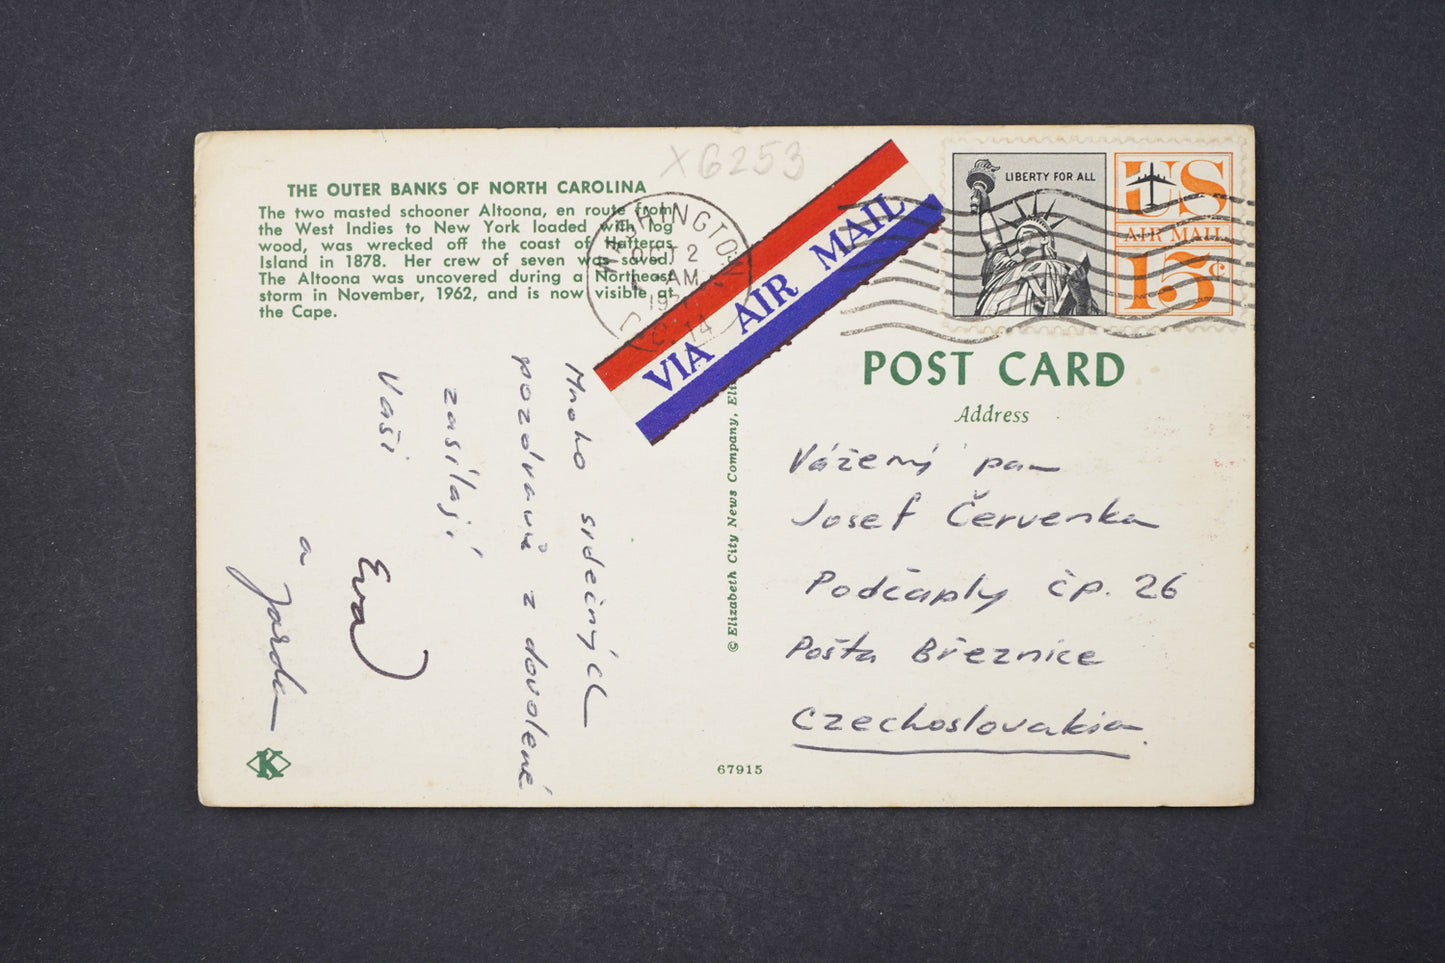 X6253
THE OUTER BANKS OF NORTH CAROLINA
The two masted schooner Altoona, en route from
the West Indies to New York loaded with log
wood, was wrecked off the coast of Hatteras
Island in 1878. Her crew of seven was saved.
The Altoona was uncovered during a Northeast
storm in November, 1962, and is now visible at
the Cape.
WASHINGTON
OCT 2
AM
14
VIA AIR MAIL
LIBERTY FOR ALL
US
AIR MAIL
15¢
Mnoho srdečných
pozdravů z dovolené
zasílají
Vaši
Eva
a Jarda
© Elizabeth City News Company,
POST CARD
Address
Vážený pan
Josef Červenka
Podčaply čp. 26
Pošta Březnice
Czechoslovakia.
K
67915